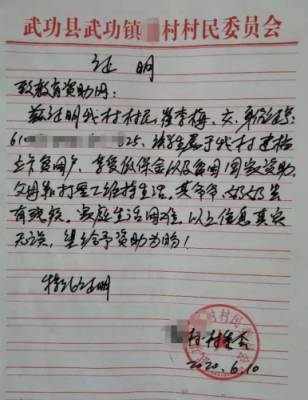 武功县武功镇 村村民委员会
证明
致教育资助网:
兹证明我村村民 李梅、女、身份证号:
610 025,该学生属于我村建档
立卡贫困户,享受低保金以及贫困国家资助,
父母靠打零工维持生活。其爷爷、奶奶患
有残疾,家庭生活困难,以上信息真实
无误,望给予资助为盼!
特此证明
村村委会
2020.6.10